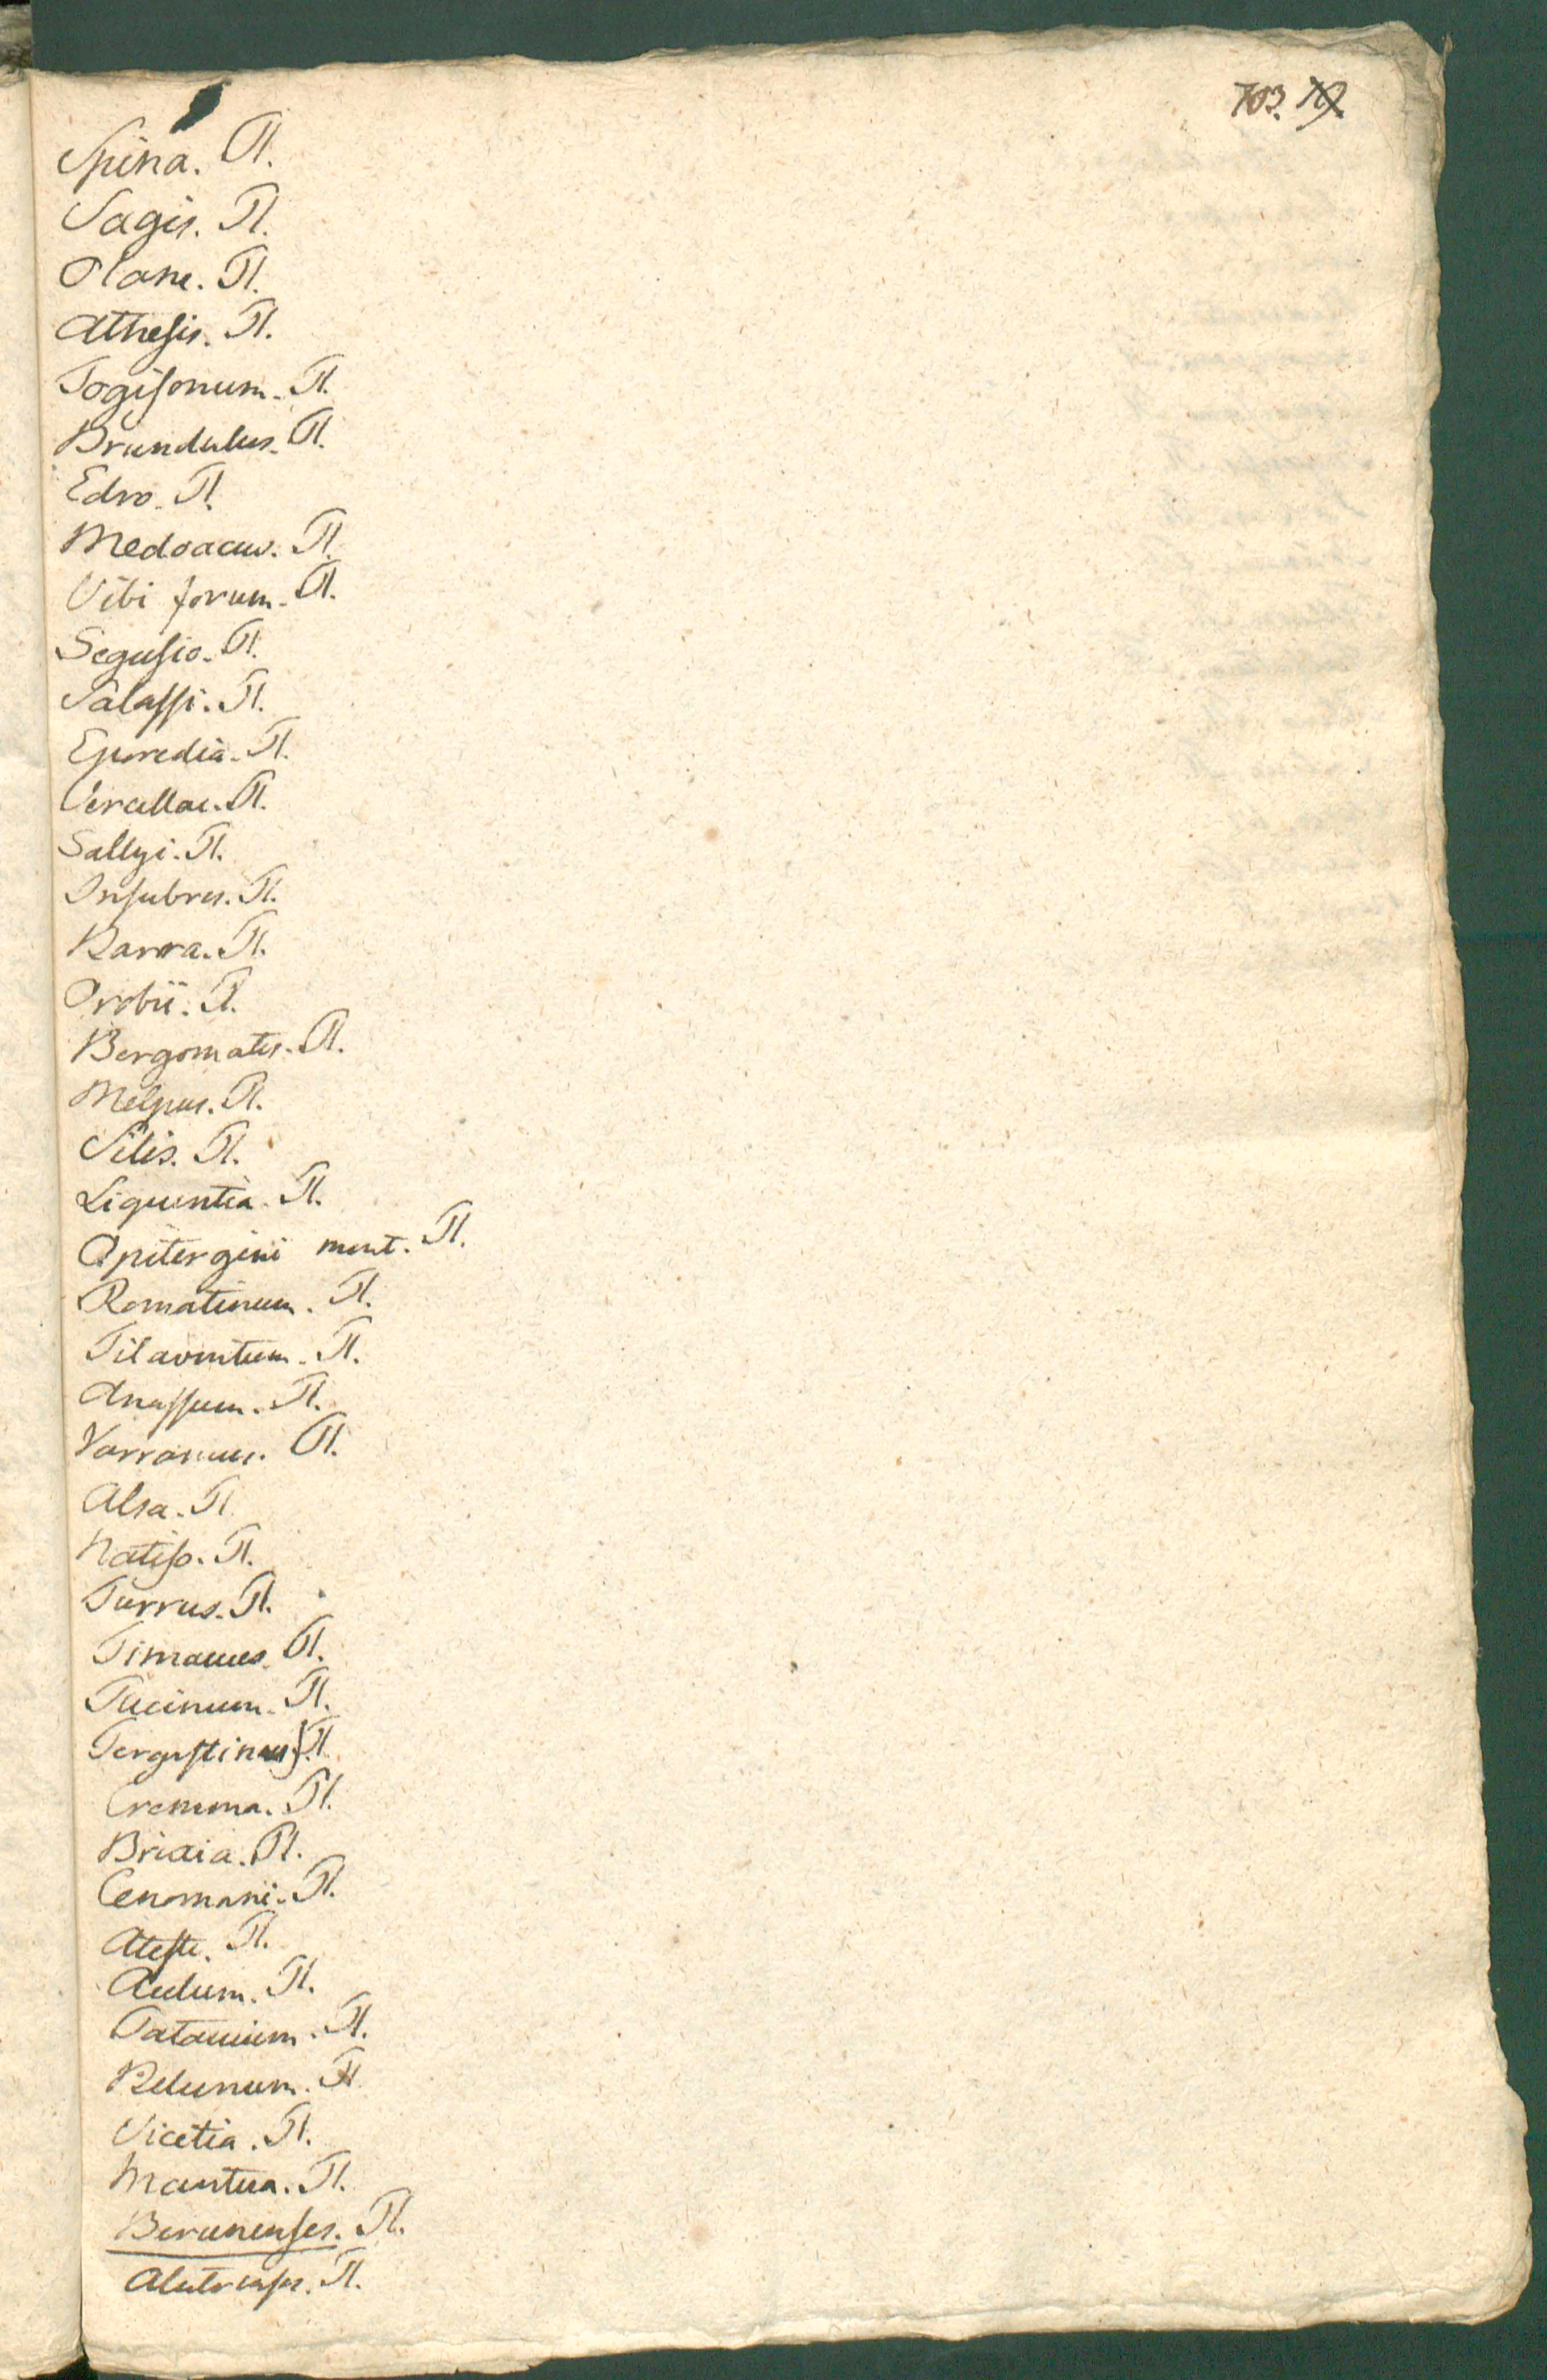 703. 19.
Spina. Пl.
Sagis. Пl.
Olane. Пl.
Athesis. Пl.
Togisonum. Пl.
Brundulus. Пl.
Edro. Пl.
Medoacus. Пl.
Vibi forum. Пl.
Segusio. Пl.
Salassi. Пl.
Eporedia. Пl.
Vercellae. Пl.
Sallyi. Пl.
Insubres. Пl.
Barra. Пl.
Orobii. Пl.
Bergomates. Пl.
Melpus. Пl.
Silis. Пl.
Liquentia. Пl.
Opitergini mont. Пl.
Romatinum. Пl.
Tilaventum. Пl.
Anassum. Пl.
Varranus. Пl.
Alsa. Пl
Natiso. Пl.
Turrus. Пl.
Timavus. Пl.
Pucinum. Пl.
Tergestinus. Пl.
Cremona. Пl.
Brixia. Пl.
Cenomani. Пl.
Ateste. Пl.
Acelum. Пl.
Patavium. Пl.
Belunum. Пl
Vicetia. Пl.
Mantua. Пl.
Berunenses. Пl.
Alutrenses. Пl.